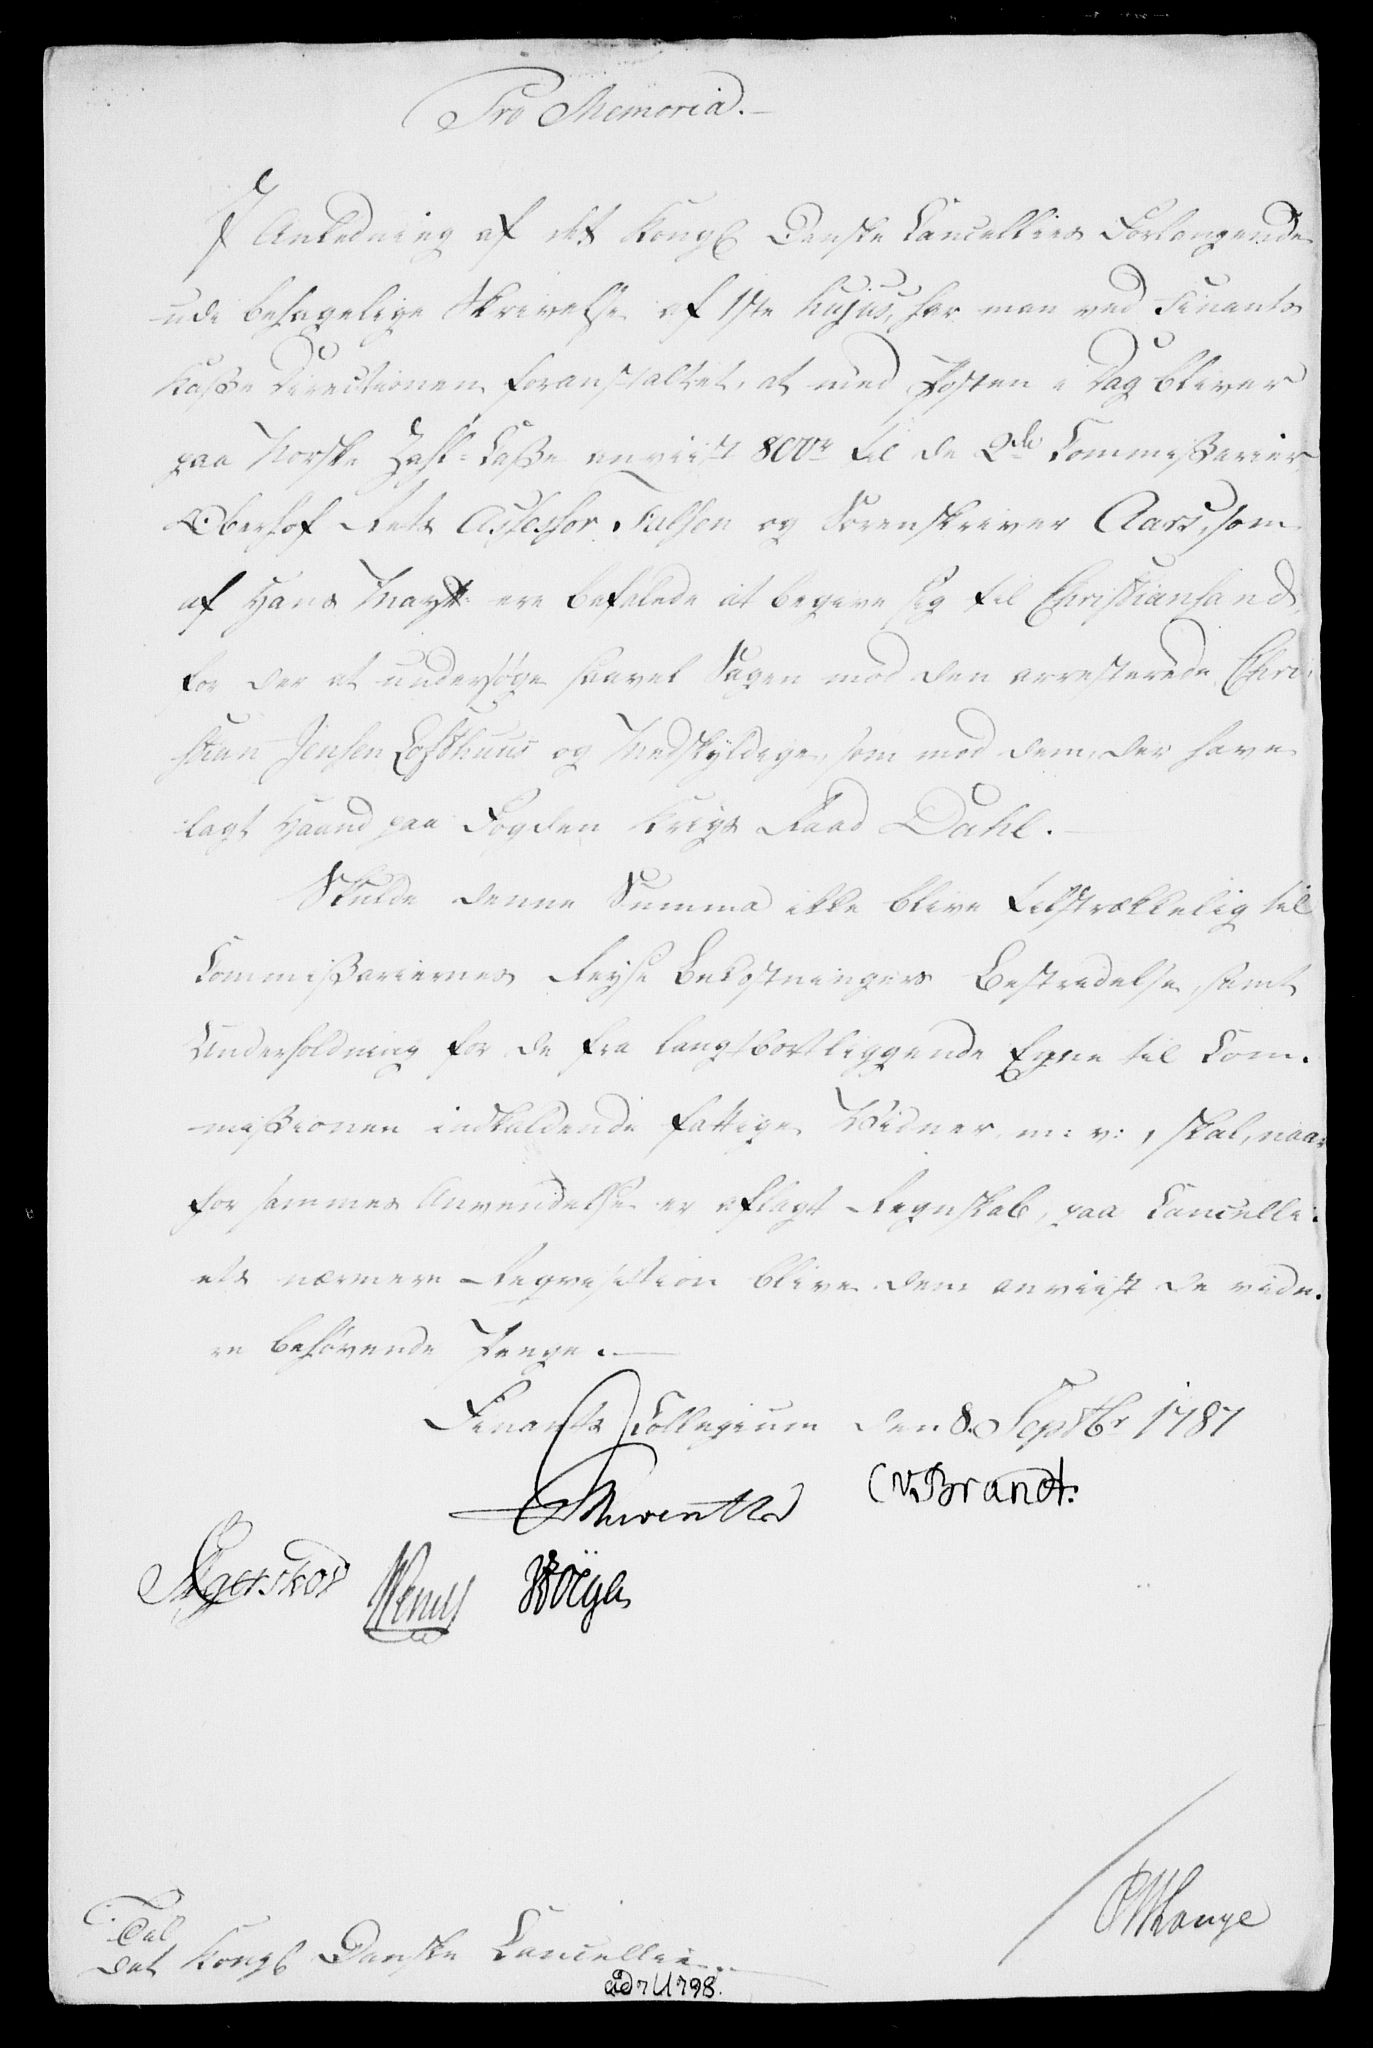 Pro Memoria.
I Anledning af det Kongl Danske Cancellies Forlangende
udi behagelige Skrivelse af 1ste hujus, har man ved Finants
Kasse Directionen foranstaltet, at med Posten i Dag bliver
paa Norske Zahl-Casse anviist 800 til de 2de Commissarier
Oberhof Rets Assessor Falsen og Sorenskriver Aars, som
af Hans Mayt: ere befalede at begive sig til Christiansand,
for der at undersøge saavel Sagen mod den arresterede Chri-
stian Jensen Lofthuus og Medskyldige, som mod dem, der have
lagt Haand paa Fogden Krigs Raad Dahl.
Skulde denne Summa ikke blive tilstrækkelig til
Commissariernes Reyse Bekostningers Bestridelse, samt
Underholdning for de fra langt bortliggende Egne til Com-
missionen indkaldende fattige Vidner m: v:, skal, naar
for sammes Anvendelse er aflagt Regnskab, paa Cancelli-
ets nærmere Reqvisition blive dem anviist de vide-
re behøvende Penge.
Finants Collegium den 8. Septbr 1787
C v. Brandt.
Agerskov
Til
det Kongl Danske Cancellie.
PMLange
ad 7 U 798.